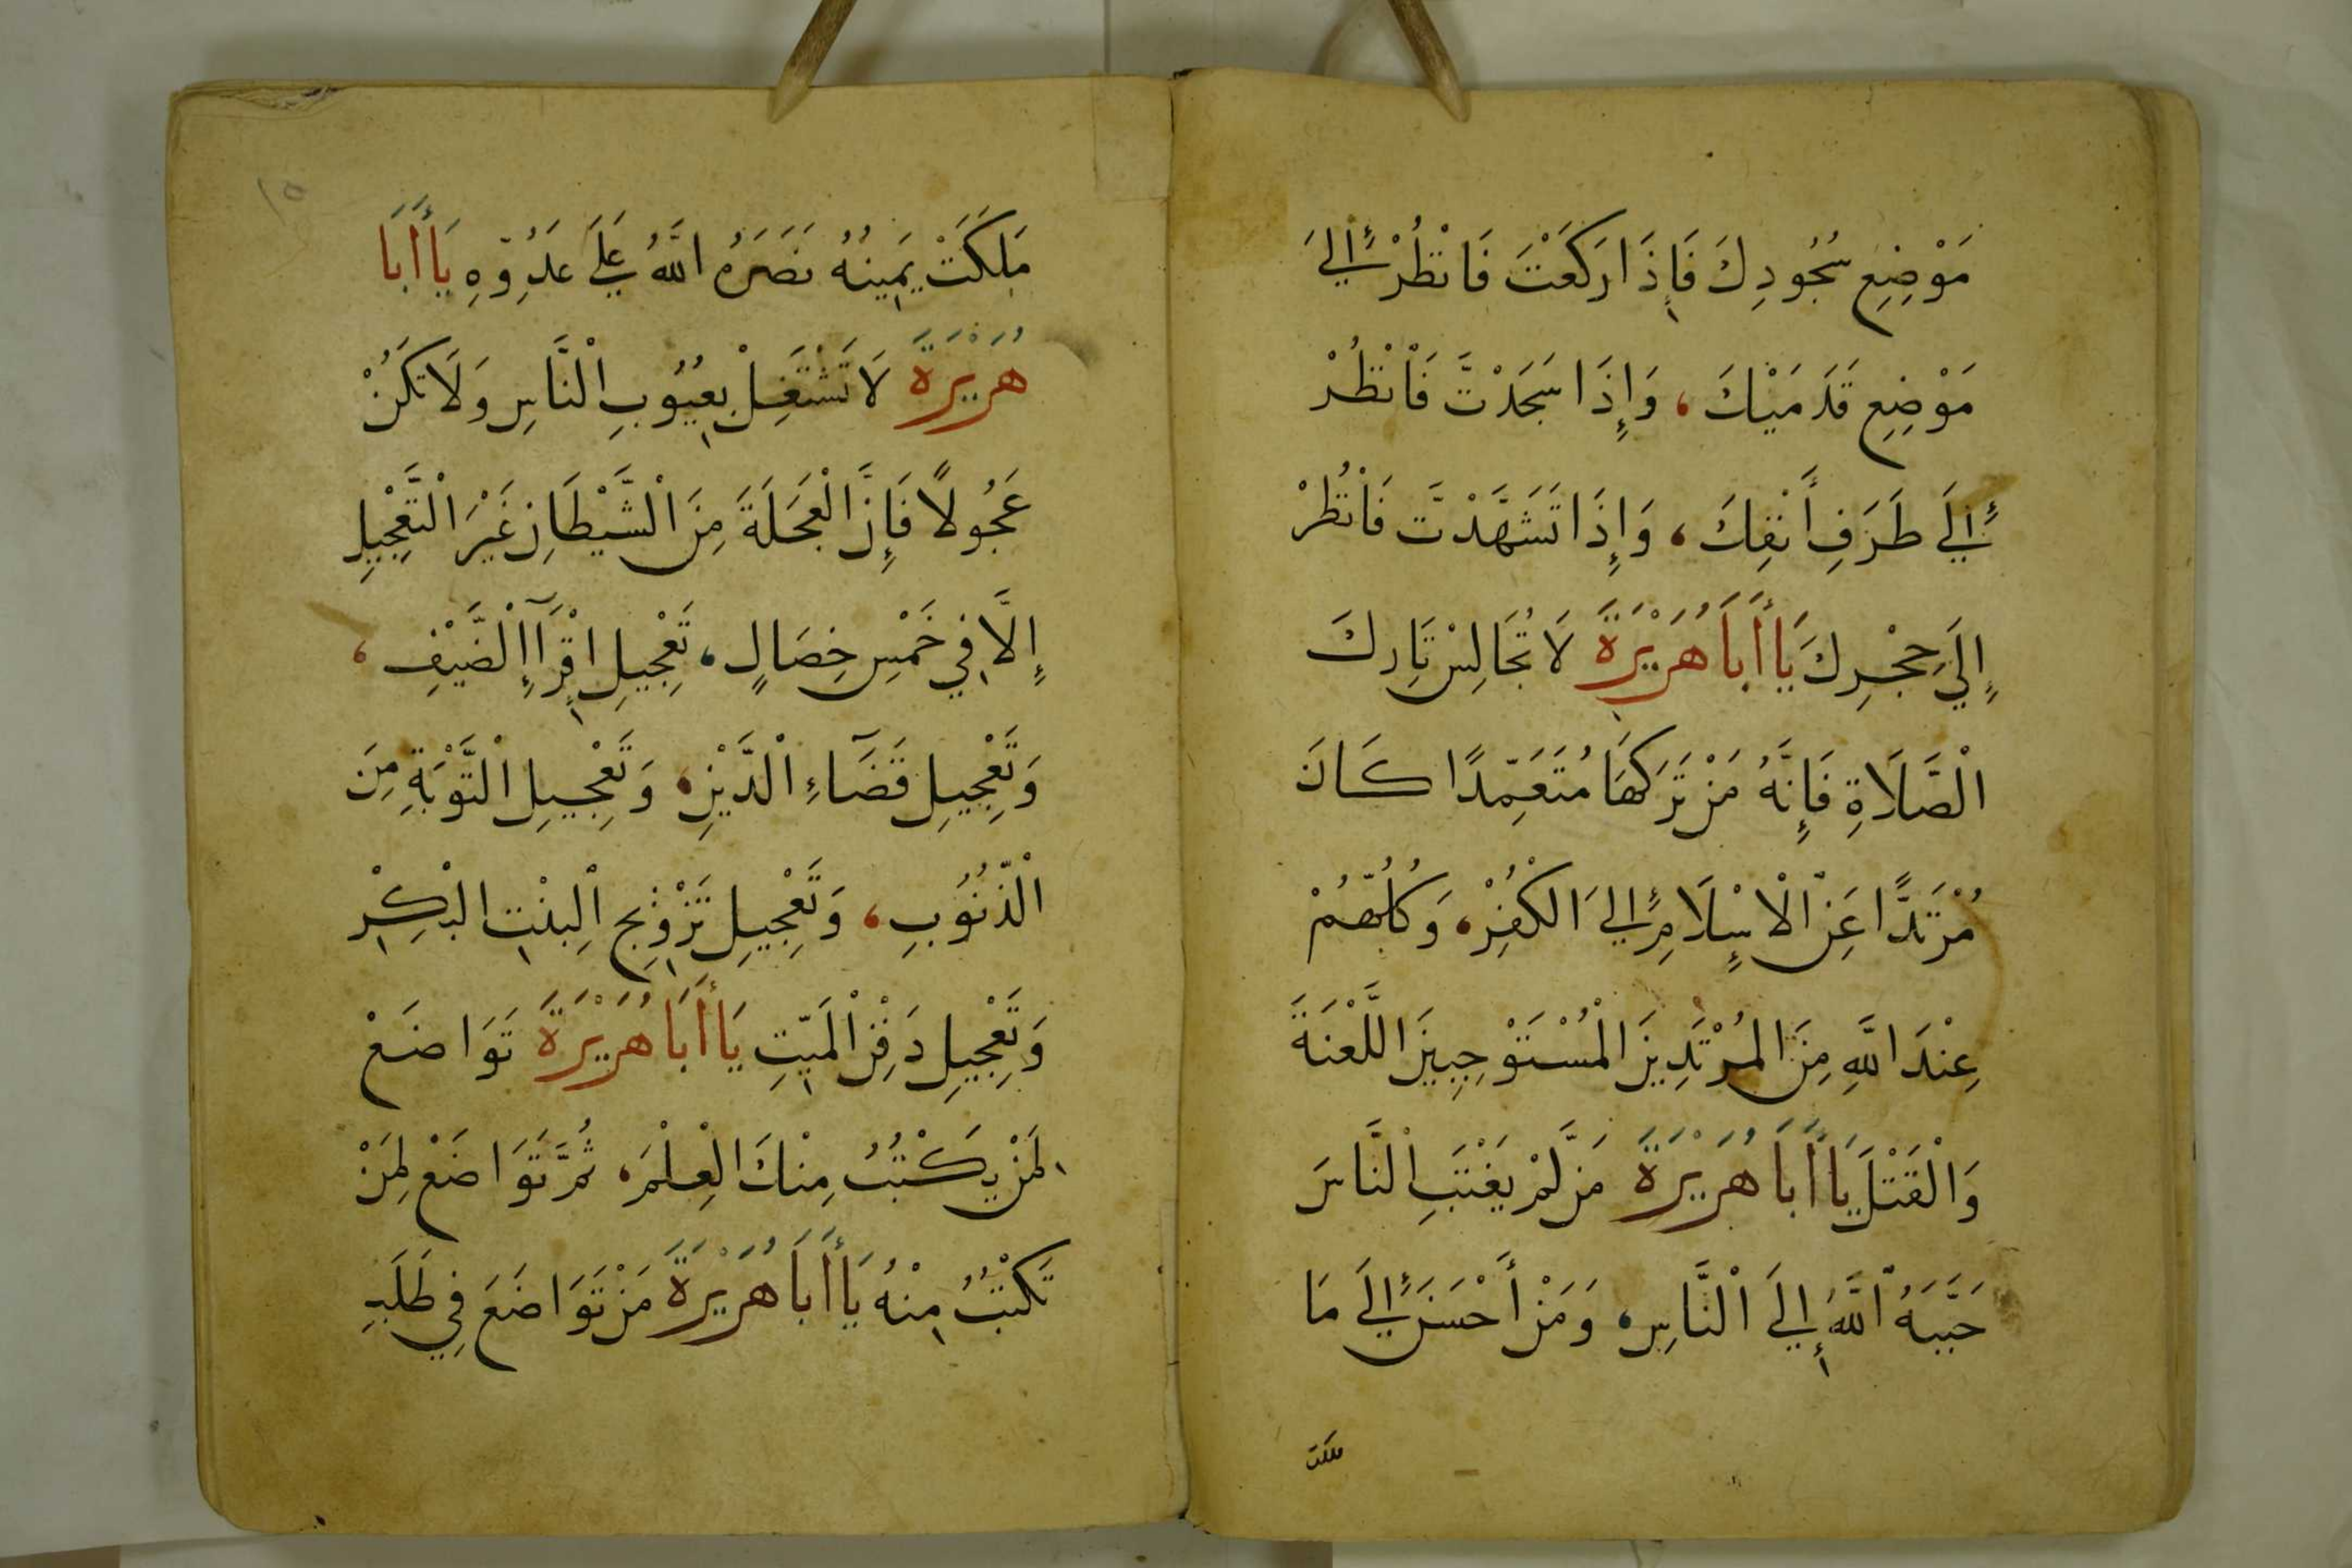 مَوْضِعِ سُجُودِكَ فَإِذَا رَكَعْتَ فَانْظُرْ إِلَىَ
مَوْضِعِ قَدَمَيْكَ، وَإِذَا سَجَدْتَّ فَانْظُرْ
إِلَى طَرَفِ أَنْفِكَ، وَإِذَا تَشَهَّدْتَّ فَانْظُرْ
إِلَى حِجْرِكَ يَا أَبَا هُرَيْرَةَ لَا تُجَالِسْ تَارِكَ
الْصَّلَاةِ فَإِنَّهُ مَنْ تَرَكَهَا مُتَعَمِّدًا كَانَ
مُرْتَدًّا عَنِ الْاسْلَامِ إِلىَ الكُفْرِ، وَكُلُّهُمْ
عِنْدَ اللَّهِ مِنَ المُرْتَدِينَ الْمُسْتَوْجِبِينَ اللَّعْنَةَ
وَالْقَتْلَ يَا أَبَا هُرَيْرَةَ مَن لَّمْ يَغْتَبِ الْنَّاسَ
حَبَّبَهُ اللَّهُ إِلَى الْنَّاسِ، وَمَنْ أَحْسَنَ إِلَى مَا
مَلَكَتْ
مَلَكَتْ يَمِينُهُ نَصَرَهُ اللَّهُ عَلَى عَدُوِّهِ يَا أَبَا
هُرَيْرَةَ لَا تَشْتَغِلْ بِعُيُوبِ الْنَّاسِ وَلَا تَكُنْ
عَجُولًا فَإِنَّ الْعَجَلَةَ مِنَ الْشَّيْطَانِ غَيْرَ الْتَّعْجِيلِ
إِلَّا فِي خَمْسِ خِصَالٍ، تَعْجِيلِ اقْرَآإِ الْضَّيْفِ،
وَتَعْجِيلِ قَضَآءِ الْدَّيْنِ، وَتَعْجِيلِ الْتَّوْبَةِ مِنَ
الْذُّنُوبِ، وَتَعْجِيلِ تَزْوِيجِ الْبِنْتِ الْبِكْرِ
وَتَعْجِيلِ دَفْنِ الْمَيِّتِ يَا أَبَا هُرَيْرَةَ تَوَاضَعْ
لِمَنْ يَكْتُبُ مِنْكَ الْعِلْمَ، ثُمَّ تَوَاضَعْ لِمَنْ
تَكْتُبُ مِنْهُ يَا أَبَا هُرَيْرَةَ مَنْ تَوَاضَعَ فِي طَلَبِ
١٥